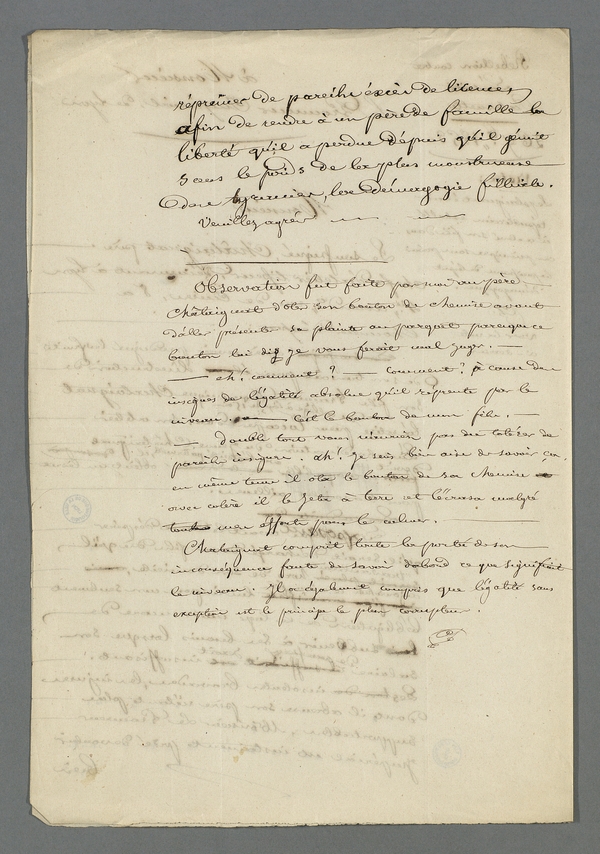 réprimer de pareils éxcès de licences
afin de rendre à un père de famille la
liberté qu'il a perdue depuis qu'il gémit
sous le poids de la plus monstrueuse
des tyrannies, la démagogie filliale.
Veuillez agréer
Observation fut faite par moi au père
Chataignat d'oter son bouton de chemise avant
d'aller présenter sa plainte au parquet parce que ce
bouton lui dis je vous ferait mal juger. —
— eh! comment? — comment? à cause de
insignes de l'égalité absolue qu'il représente par le
niveau. — c'est le bouton de mon fils. —
— double tort vous n'auriez pas du tolérer de
pareils insignes. ah! je suis bien aise de savoir ça.
en même tems il ota le bouton de sa chemise
avec colère il le jeta à terre et l'écrasa malgré
mes efforts pour le calmer.
Chataignat comprit toute la portée de son
inconséquence faute de savoir d'abord ce que signifiait
le niveau. Il a également compris que l'égalité sans
exception est le principe le plus corrupteur.